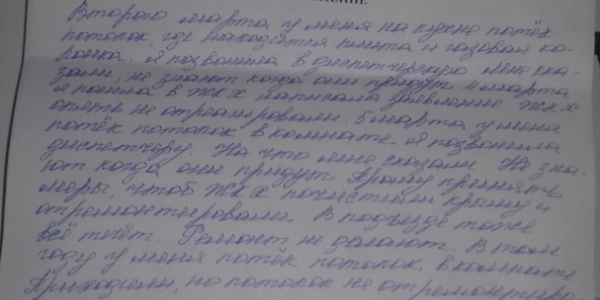 ЛЕНИЕ
Второго марта у меня на кухне потёк
потолок, где находится плита и газовая ко-
лонка. Я позвонила в диспетчерскую мне ска-
зали, не знают когда они придут 4 марта
я пошла в ЖКХ написала заявление ЖКХ
опять не отреагировали. 5 марта у меня
потёк потолок в комнате. Я позвонила
диспетчеру. На что мне сказали. Не зна-
ют когда они придут Прошу принять
меры, чтоб ЖКХ почистили крышу и
отремонтировали. В подъезде тоже
всё течёт. Ремонт не делают. В том
году у меня потёк потолок в комнате
Приходили, но потолок не отремонтиро